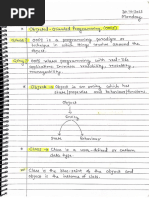 Monday
* Objected - Oriented Programming (OOPs)
OOPs is a programming paradigm or
technique in which things revolve around the
object.
OOPs is a programming with real-life
application Increase reusability, readability,
manageability.
* Object → Object is an entity which has
state/properties and behaviour/functions.
Object
Entity
State
Behaviour
* Class → Class is a user-defined or custom
data type.
Class is the blue-print of the object and
object is the instance of class.